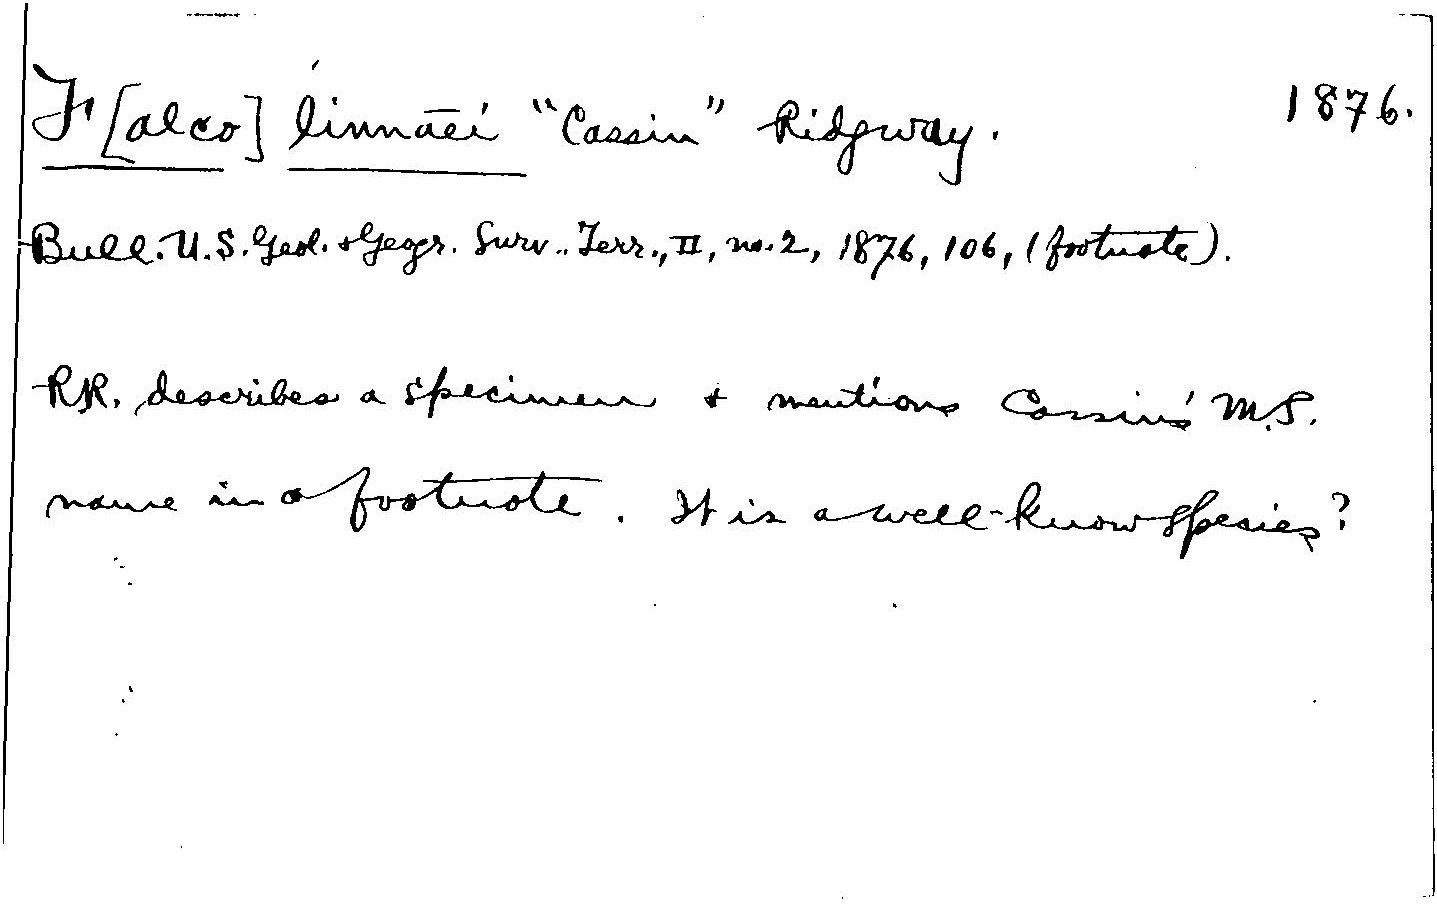 F[alco] linnaei "Cassin" Ridgway. 1876.
Bull. U.S. Geol. & Geogr. Surv.. Terr., II, no. 2, 1876, 106, (footnote).
RR. describes a specimen & mentions Cassin's M.S.
name in a footnote. It is a well-know species?